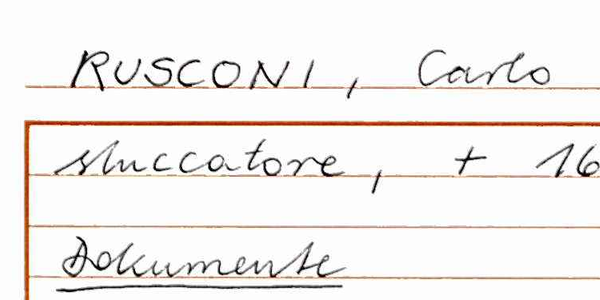 RUSCONI, Carlo
stuccatore, + 16
Dokumente